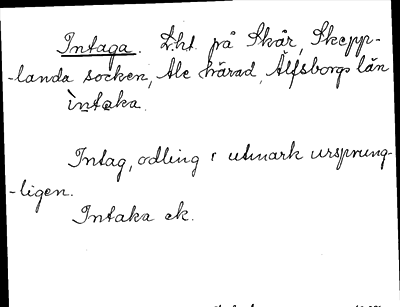 Intaga. Lht på Skår, Skepp-
-landa socken, Ale härad, Älfsborgs län
ìntaka.
Intag, odling i utmark ursprung-
-ligen.
Intaka ek.